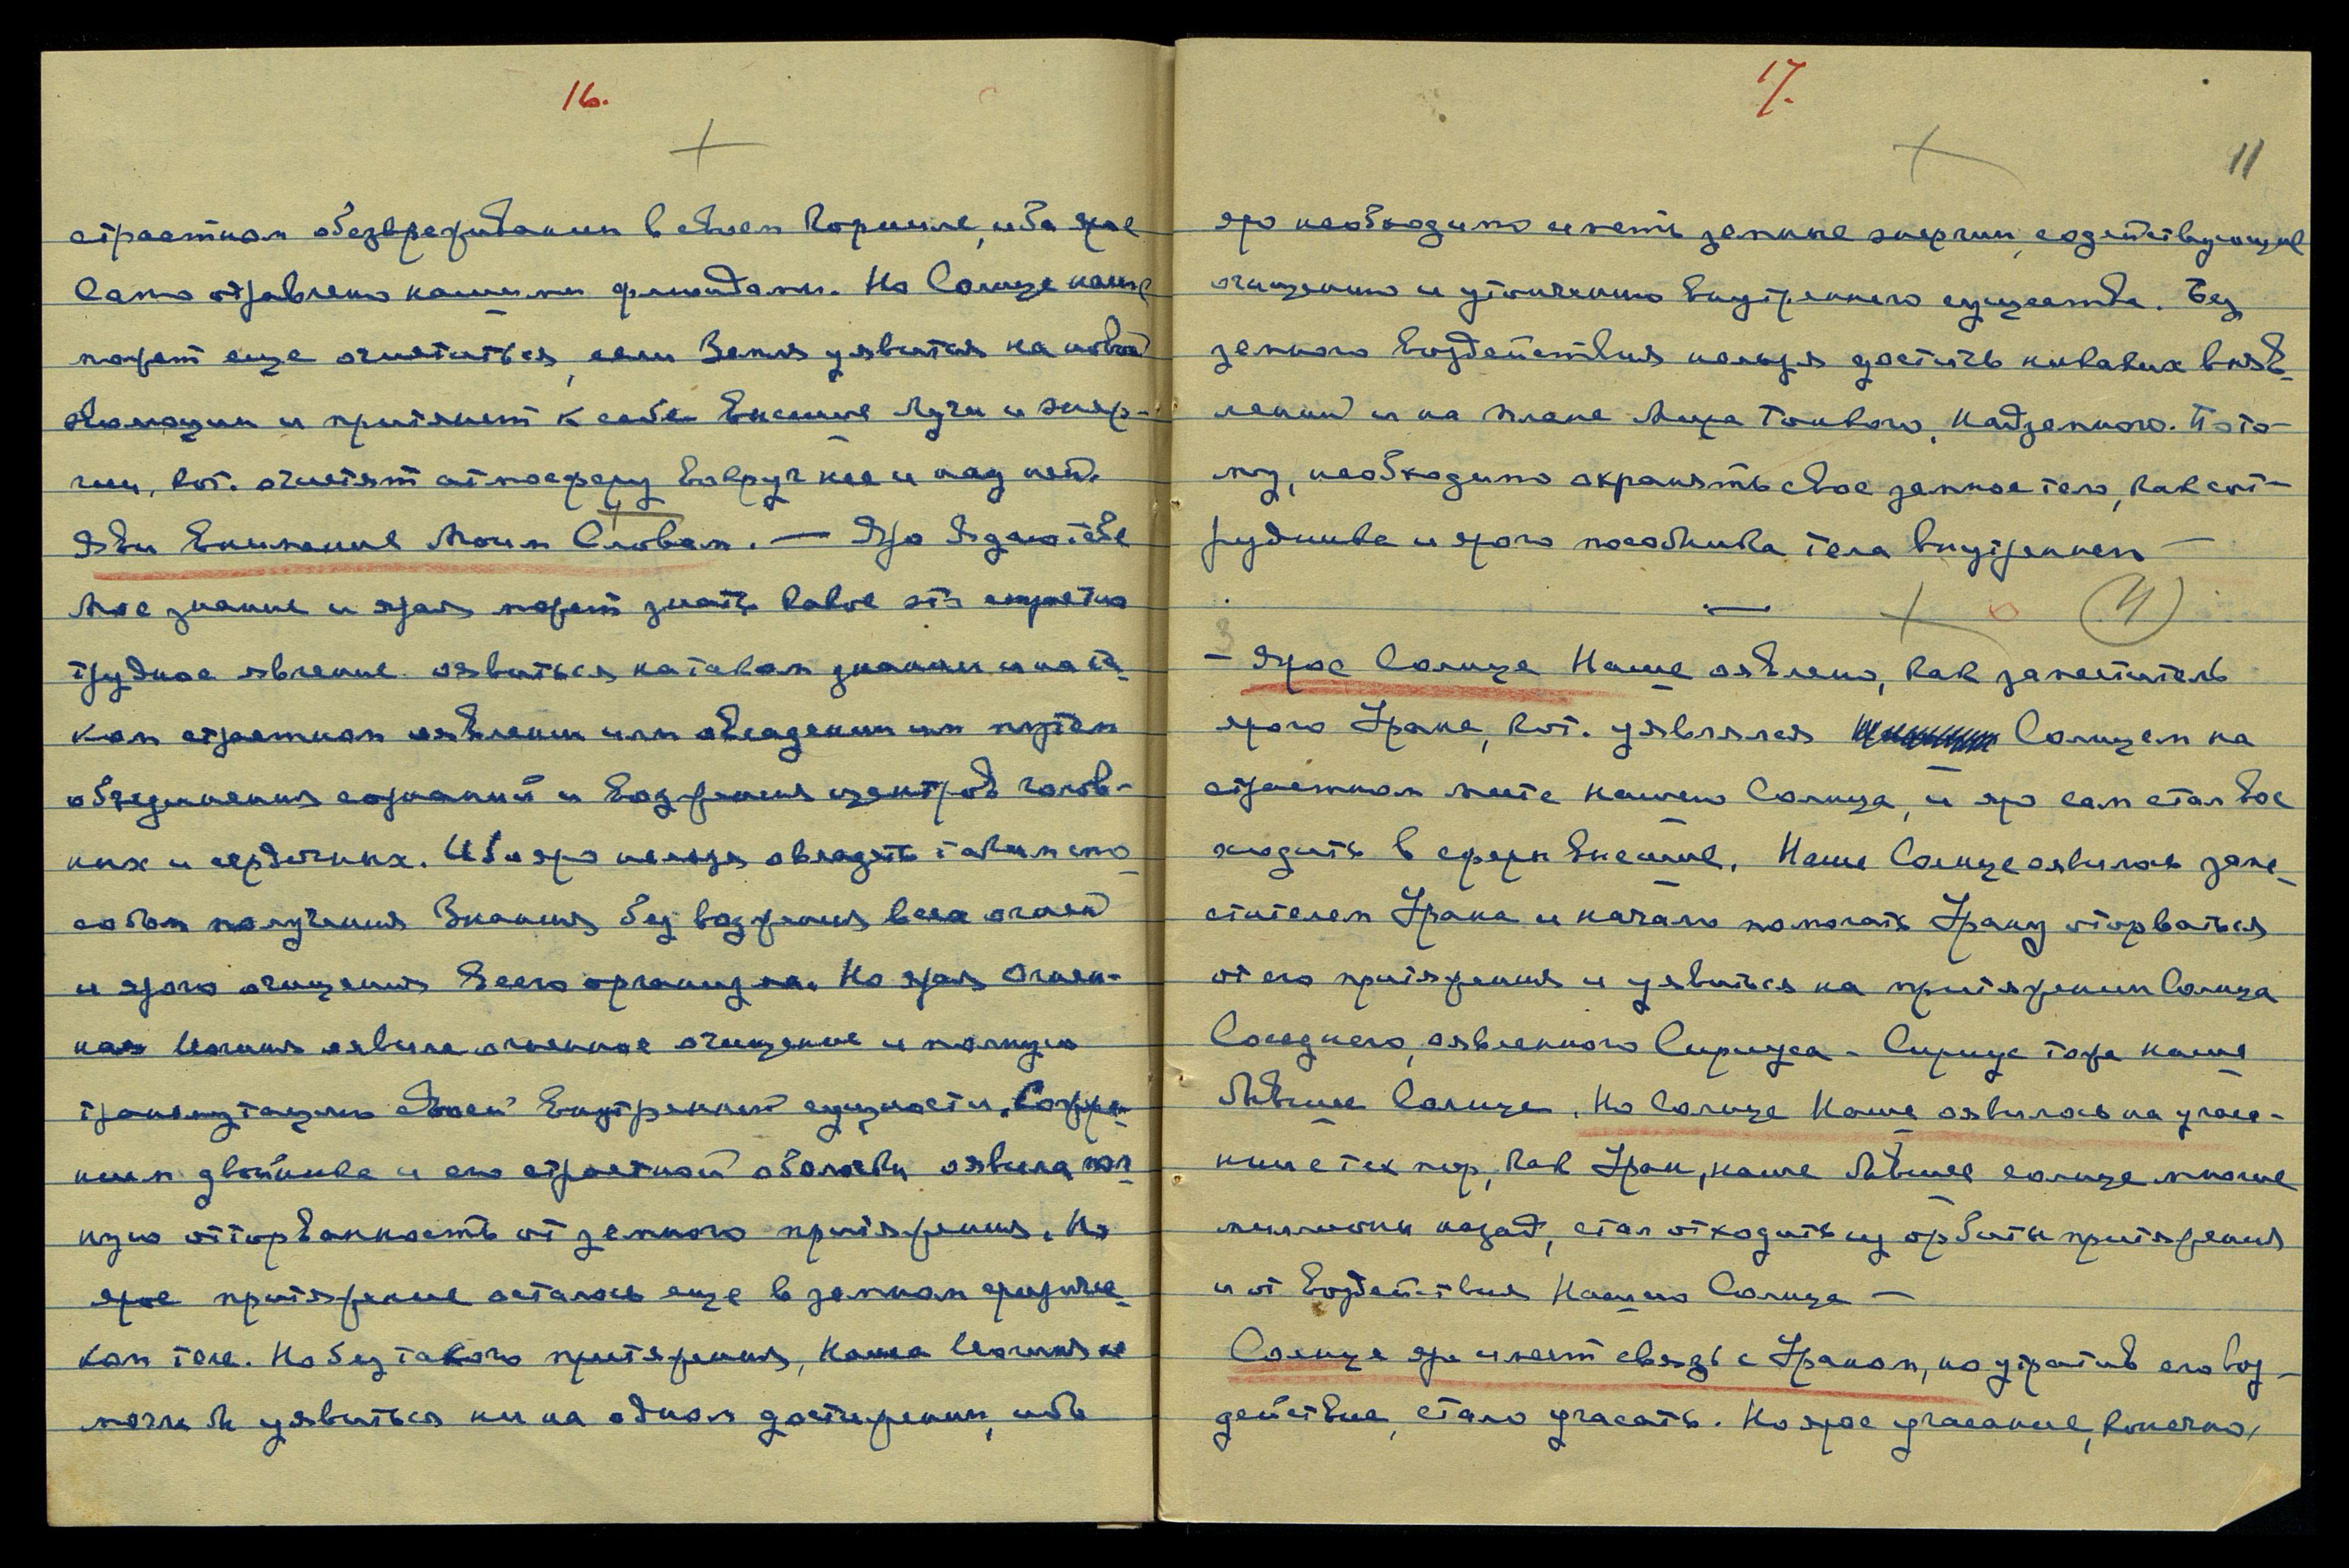 16.
страстном обезвреживании в своем Кормиле, ибо ярое
само отравлено нашими флюидами. Но Солнце наше
может еще очиститься, если Земля уявится на новой
эволюции и притянет к себе Высшие Лучи и энер-
гии, кот. очистят атмосферу вокруг нее и над ней.
Яви внимание Моим Словам. — Яро Я даю тебе
Мое знание и ярая может знать какое это страстно
трудное явление оявиться на таком знании и на та-
ком страстном оявлении или овладении им путем
объединения сознаний и возжжения центров голов-
ных и сердечных. Ибо яро нельзя овладеть таким спо-
собом получения Знания без возжжения всех огней
и ярого очищения всего организма. Но ярая Огнен-
ная Иогиня оявила огненное очищение и полную
трансмутацию своей внутренней сущности. Сожже-
нием двойника и его страстной оболочки оявила пол-
ную отторванность от земного притяжения. Но
ярое притяжение осталось еще в земном физичес-
ком теле. Но без такого притяжения, Наша Иогиня не
могла бы уявиться ни на одном достижении, ибо
17.
11
яро необходимо иметь земные энергии, содействующие
очищению и утончению внутреннего существа. Без
земного воздействия нельзя достичь никаких выяв-
лений и на плане Мира Тонкого, Надземного. Пото-
му, необходимо охранять свое земное тело, как сот-
рудника и ярого пособника тела внутреннего —
— Ярое Солнце Наше оявлено, как заместитель
ярого Урана, кот. уявлялся Солнцем на
страстном месте нашего Солнца, и яро сам стал вос
ходить в сферы высшие. Наше Солнце оявилось заме-
стителем Урана и начало помогать Урану оторваться
от его притяжения и уявиться на притяжении Солнца
Соседнего, оявленного Сириуса - Сириус тоже наше
бывшее Солнце. Но Солнце Наше оявилось на угаса-
нии с тех пор, как Уран, наше бывшее солнце многие
миллионы назад, стал отходить из орбиты притяжения
и от воздействия Нашего Солнца —
Солнце яро имеет связь с Ураном, но утратив его воз-
действие, стало угасать. Но ярое угасание, конечно,